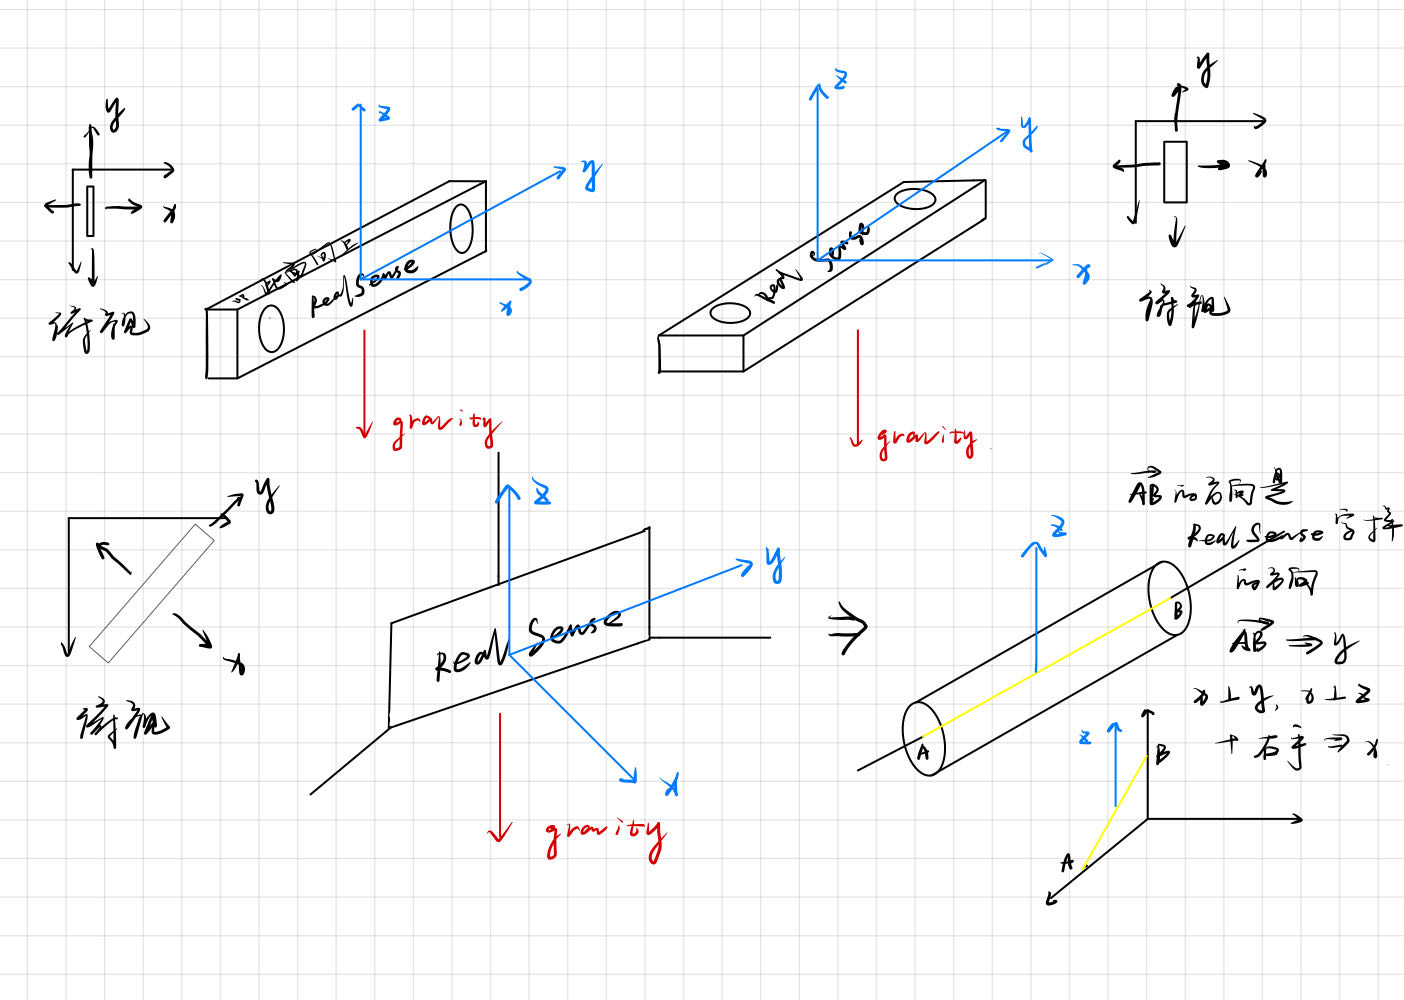 y
x
俯视
z
y
RealSense
x
gravity
z
y
Real Sense
x
gravity
y
x
俯视
y
x
俯视
z
y
Real Sense
x
gravity
z
A
B
AB 的方向是
RealSense 字样
的方向
AB ⇒ y
x⊥y, x⊥z
+ 右手 ⇒ x
z
B
A